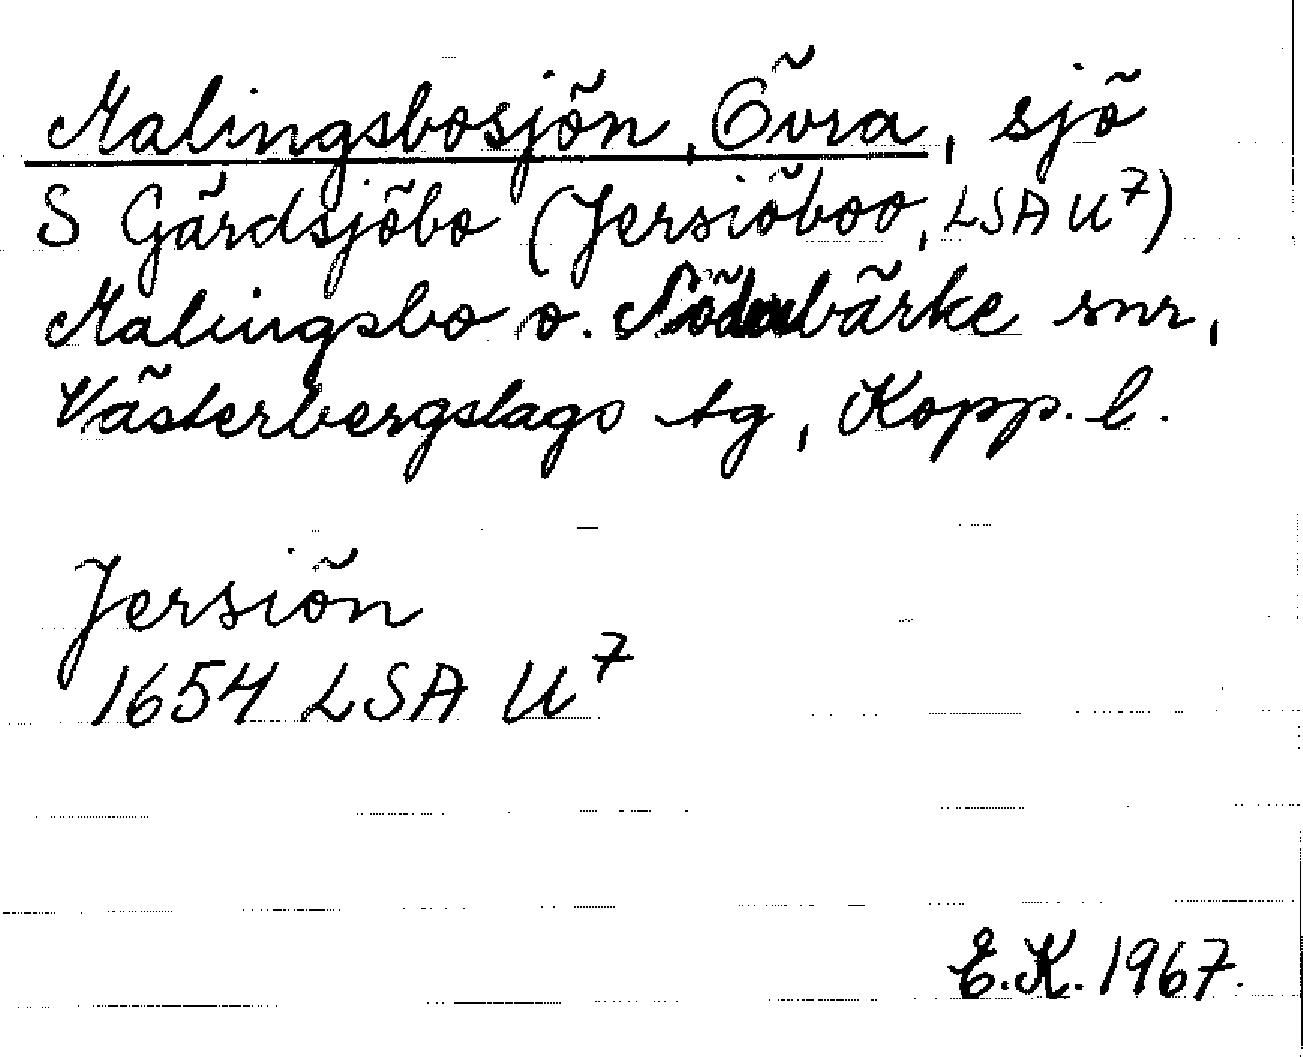 Malingsbosjön, Övra, sjö
S Gärdsjöbo (Jersiöboo, LSA U7)
Malingsbo o. Söderbärke snr,
Västerbergslags tg, Kopp. l.
Jersiön
1654 LSA U7
E.K. 1967.